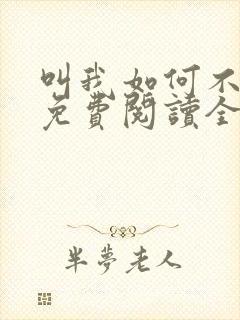 叫我如何不
免費閱讀全
半夢老人